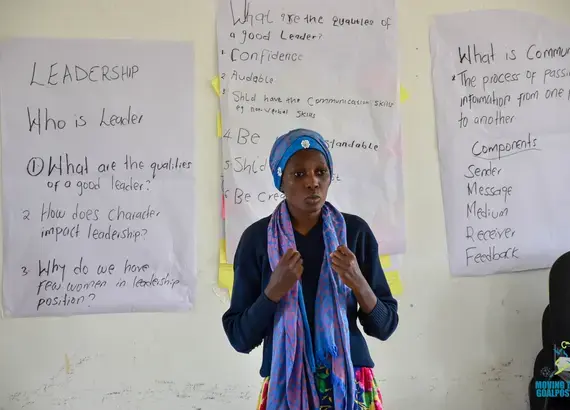 LEADERSHIP
Who is Leader
1 What are the qualities
of a good leader?
2 How does character
impact leadership?
3 Why do we have
few women in leadership
position?
What are the qualities of
a good Leader?
1 Confidence
2 Audable
3 Shld have the Communication skills
eg non-verbal skills
4. Be standable
5 Shld
6 Be Crea
What is Commu
* The process of passi
information from one p
to another
Components
Sender
Message
Medium
Receiver
Feedback
MOVING T
GOALPOS